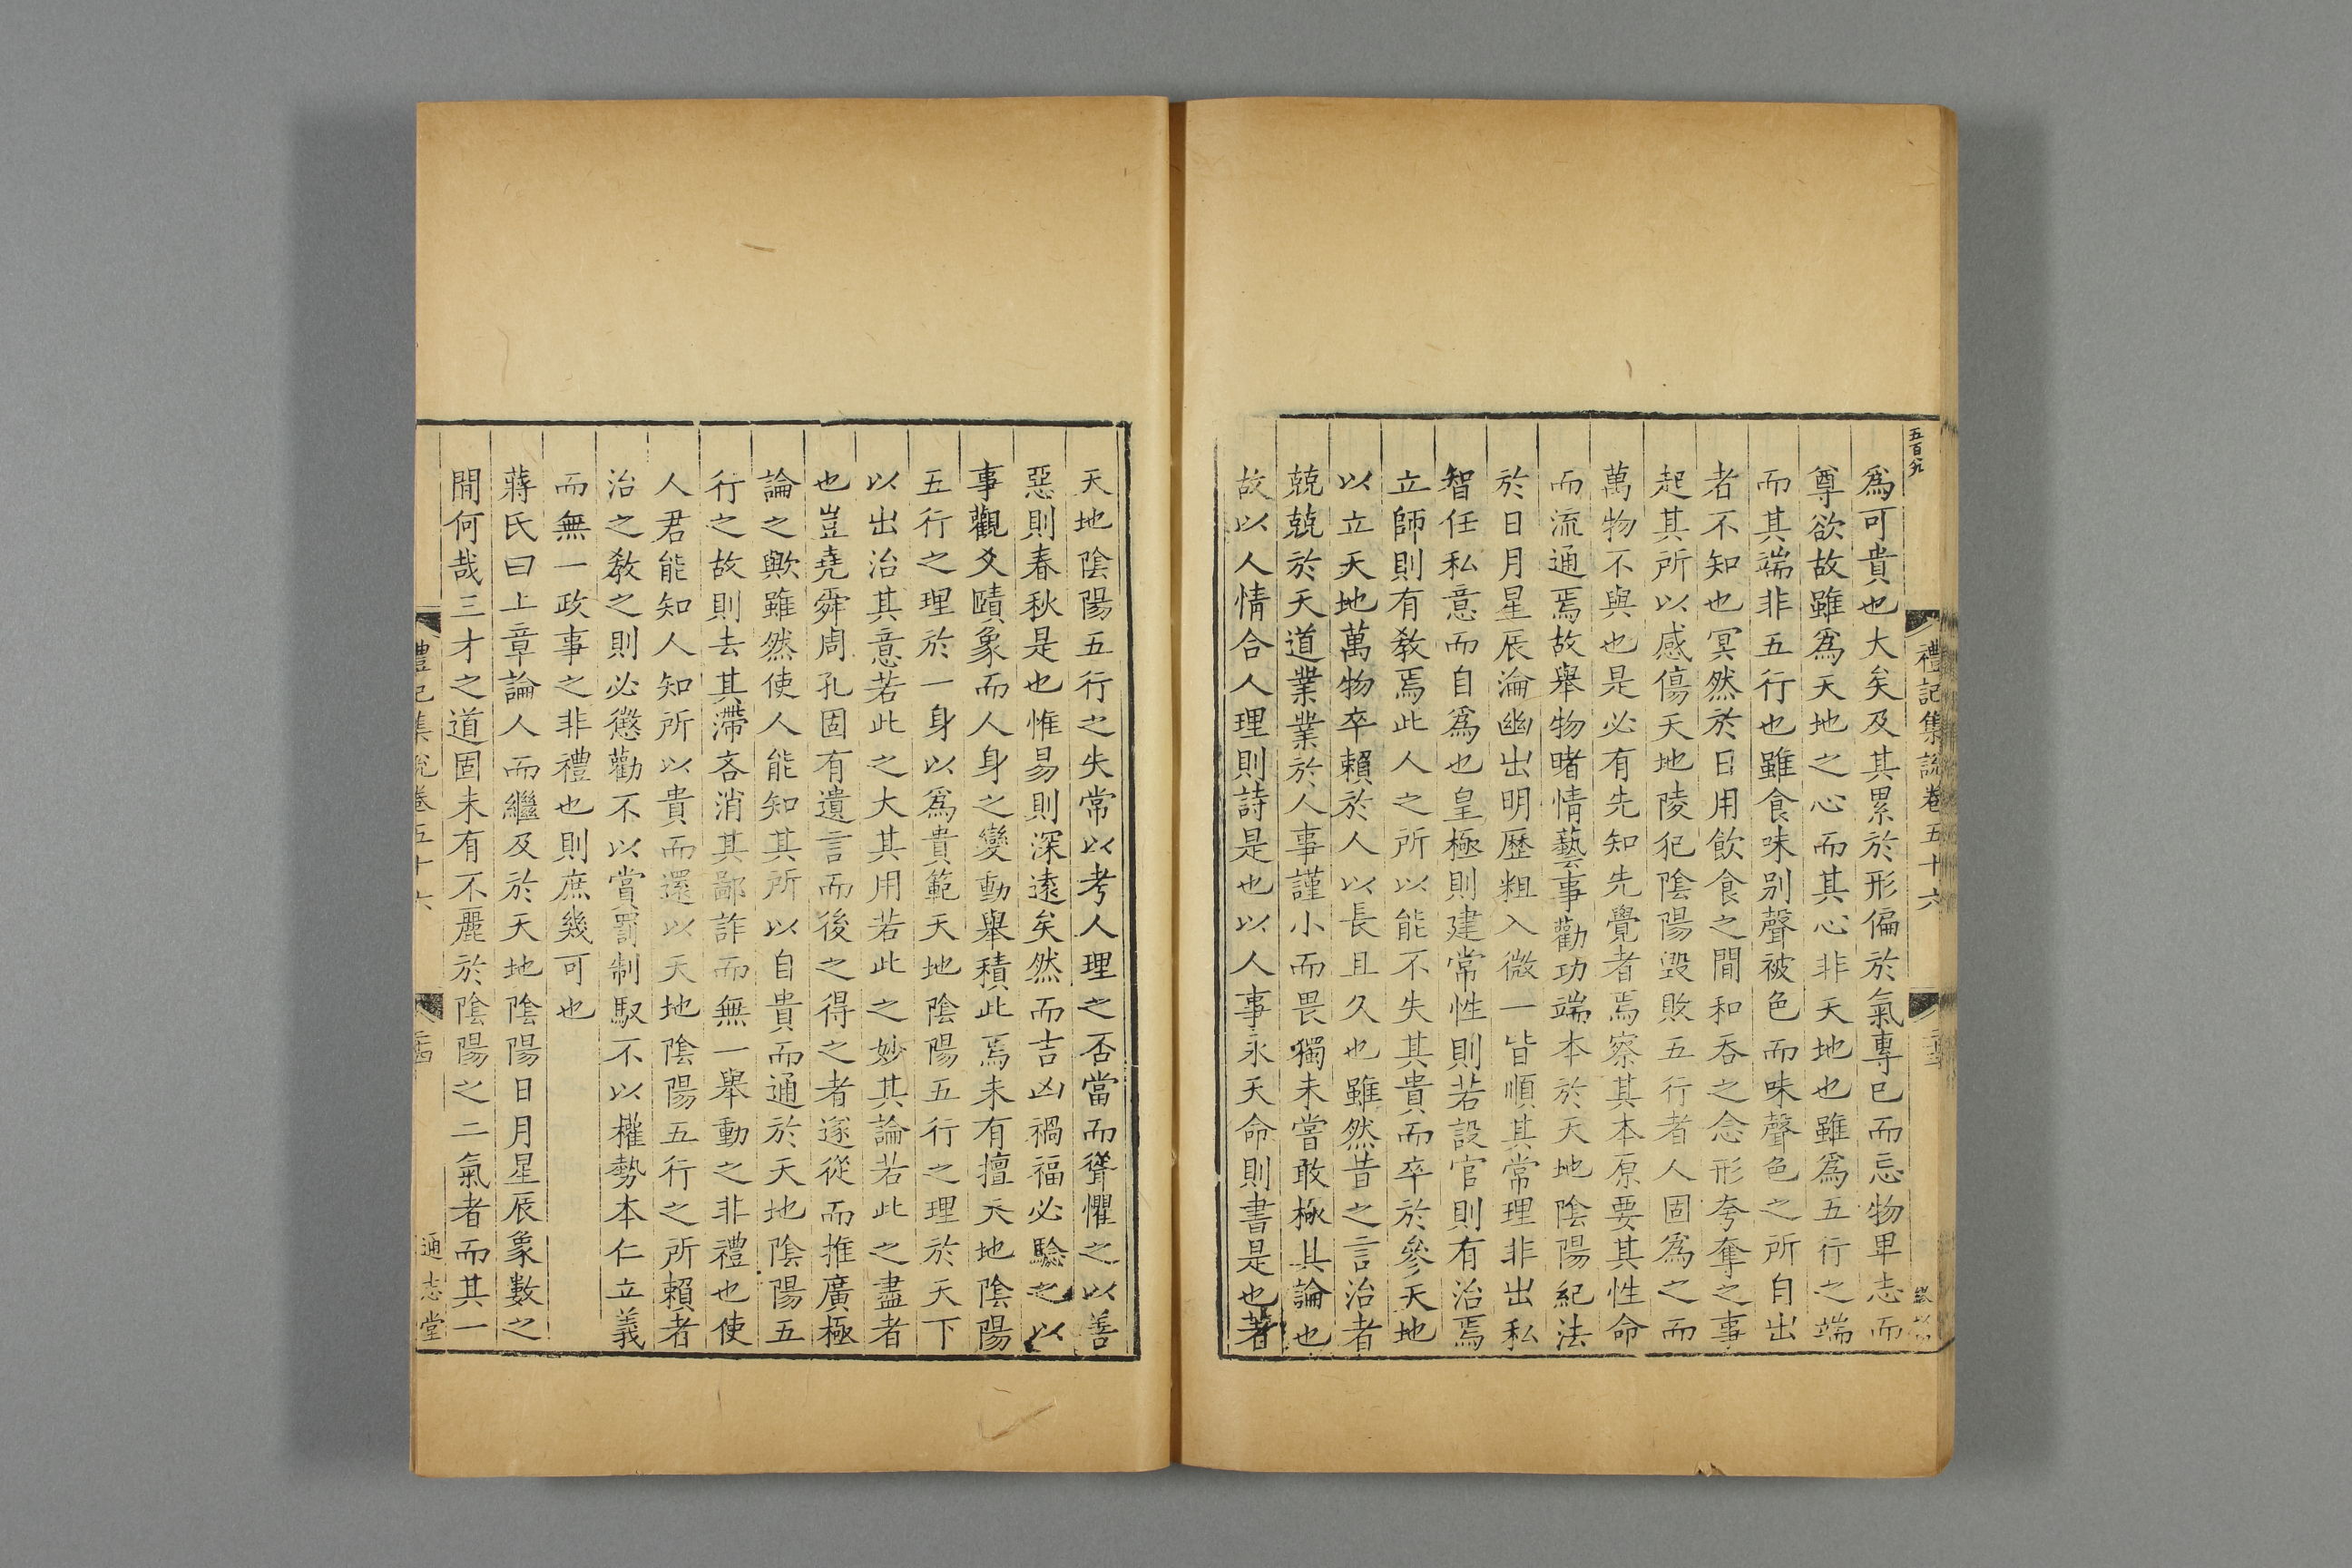 五百九
禮記集説卷五十六
爲可貴也大矣及其累於形偏於氣專已而忌物卑志而
尊欲故雖爲天地之心而其心非天地也雖爲五行之端
而其端非五行也雖食味别聲被色而味聲色之所自出
者不知也冥然於日用飲食之間和吞之念形夸奪之事
起其所以感傷天地陵犯陰陽毀敗五行者人固爲之而
萬物不與也是必有先知先覺者焉察其本原要其性命
而流通焉故舉物睹情藝事勸功端本於天地陰陽紀法
於日月星辰淪幽出明歷粗入微一皆順其常理非出私
智任私意而自爲也皇極則建常性則若設官則有治焉
立師則有教焉此人之所以能不失其貴而卒於參天地
以立天地萬物卒賴於人以長且久也雖然昔之言治者
兢兢於天道業業於人事謹小而畏獨未嘗敢極其論也
故以人情合人理則詩是也以人事永天命則書是也著
天地陰陽五行之失常以考人理之否當而聳懼之以善
惡則春秋是也惟易則深逺矣然而吉凶禍福必驗之以
事觀爻賾象而人身之變動舉積此焉未有擅天地陰陽
五行之理於一身以爲貴範天地陰陽五行之理於天下
以出治其意若此之大其用若此之妙其論若此之盡者
也豈堯舜周孔固有遺言而後之得之者遂從而推廣極
論之歟雖然使人能知其所以自貴而通於天地陰陽五
行之故則去其滯吝消其鄙詐而無一舉動之非禮也使
人君能知人知所以貴而還以天地陰陽五行之所賴者
治之教之則必懲勸不以賞罰制馭不以權勢本仁立義
而無一政事之非禮也則庶幾可也
蔣氏曰上章論人而繼及於天地陰陽日月星辰象數之
閒何哉三才之道固未有不麗於陰陽之二氣者而其一
禮記集説卷五十六 二十四 通志堂